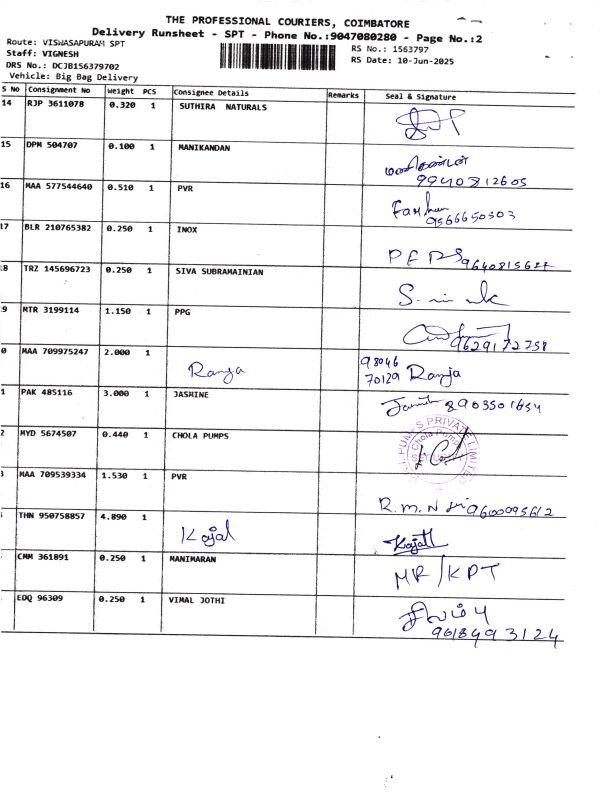 THE PROFESSIONAL COURIERS, COIMBATORE
Delivery Runsheet - SPT - Phone No.:9047080280 - Page No.:2
Route: VISWASAPURAM SPT
RS No.: 1563797
Staff: VIGNESH
RS Date: 10-Jun-2025
DRS No.: DCJB156379702
Vehicle: Big Bag Delivery
S No Consignment No Weight PCS Consignee Details Remarks Seal & Signature
14 RJP 3611078 0.320 1 SUTHIRA NATURALS
15 DPM 504707 0.100 1 MANIKANDAN மணிகண்டன்
9940812605
16 MAA 577544640 0.510 1 PVR
9566650303
17 BLR 210765382 0.250 1 INOX
18 TRZ 145696723 0.250 1 SIVA SUBRAMAINIAN
9 MTR 3199114 1.150 1 PPG
9629172758
0 MAA 709975247 2.000 1 Ranja 98046
70129 Ranja
1 PAK 485116 3.000 1 JASMINE 8903501654
2 MYD 5674507 0.440 1 CHOLA PUMPS
PUMPS PRIVATE LIMITED
Chola Pumps
MAA 709539334 1.530 1 PVR R.M.N 9600095612
THN 950758857 4.890 1 Kajal Kajal
CMM 361891 0.250 1 MANIMARAN MR/KPT
EDQ 96309 0.250 1 VIMAL JOTHI
9618493124